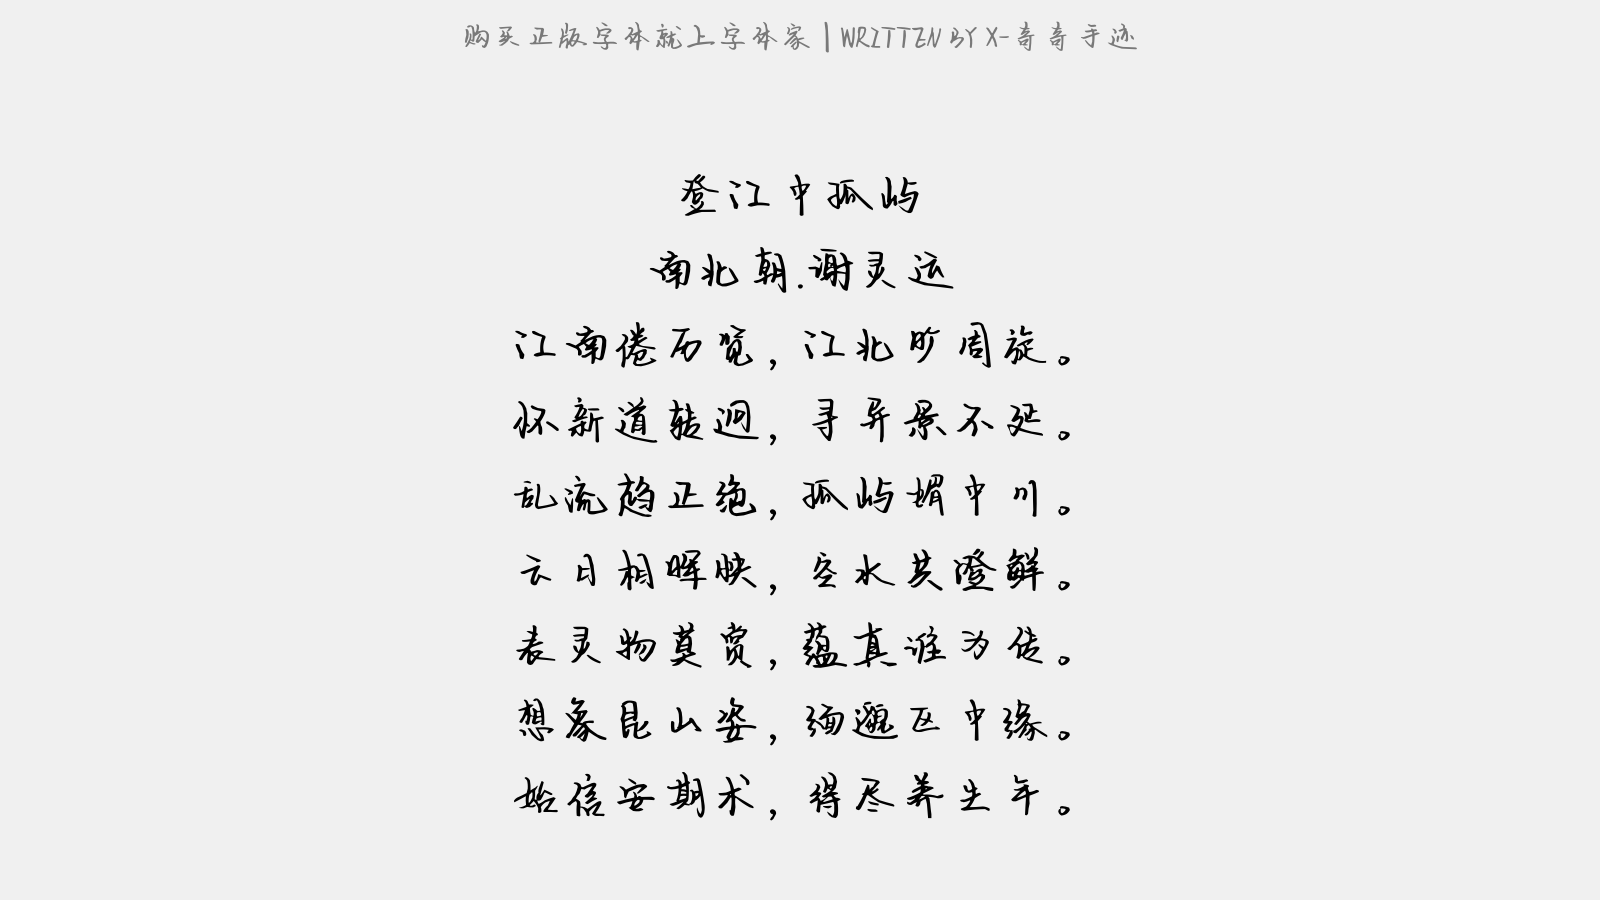 购买正版字体就上字体家 | WRITTEN BY X-奇奇手迹
登江中孤屿
南北朝.谢灵运
江南倦历览，江北旷周旋。
怀新道转迥，寻异景不延。
乱流趋正绝，孤屿媚中川。
云日相晖映，空水共澄鲜。
表灵物莫赏，蕴真谁为传。
想象昆山姿，缅邈区中缘。
始信安期术，得尽养生年。